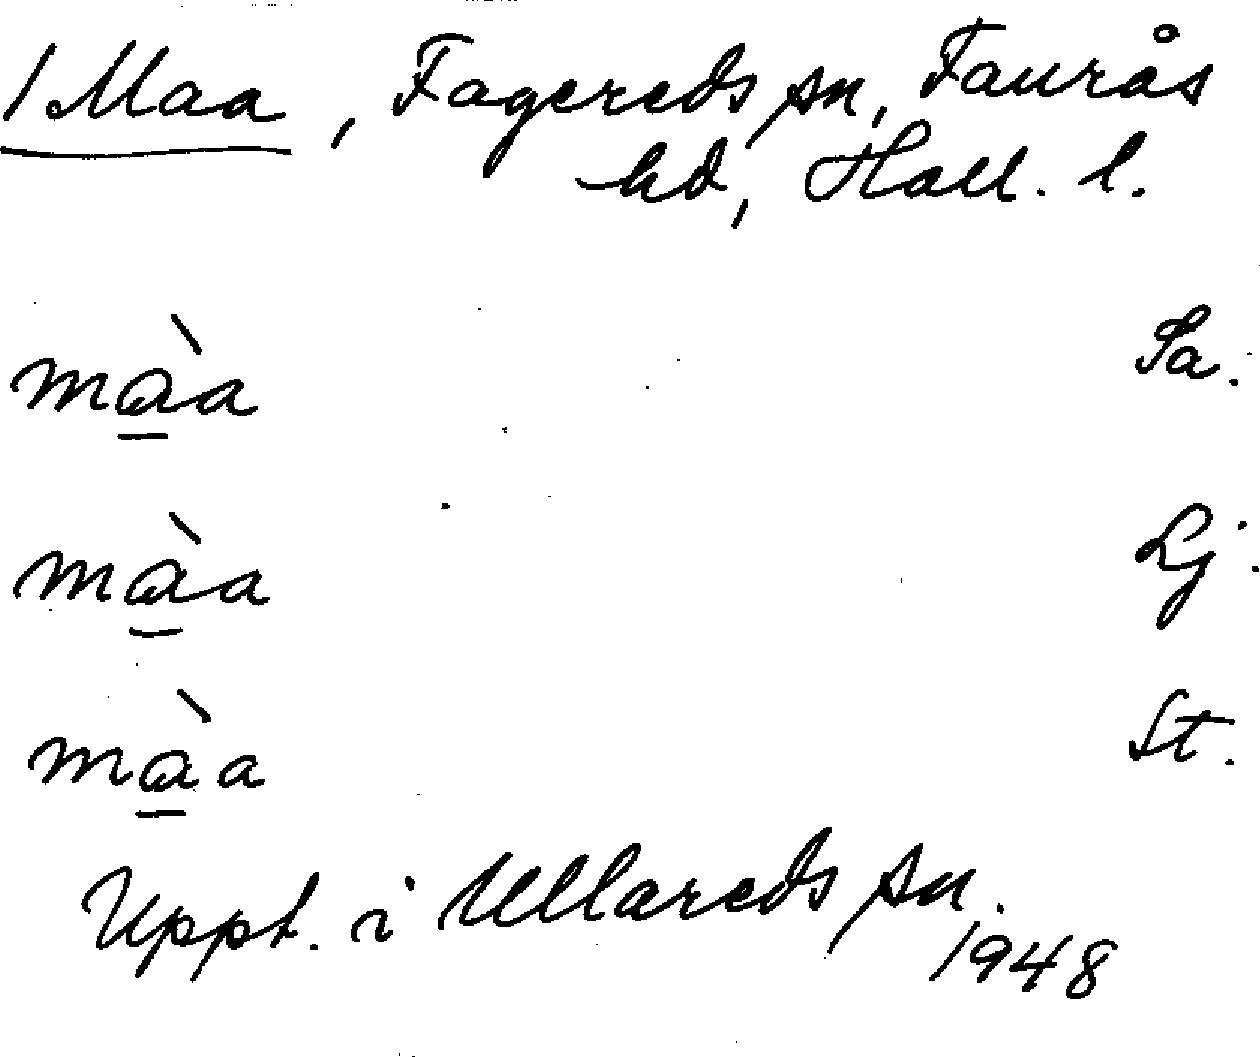 1 Maa, Fagereds sn, Faurås
hd, Hall. l.
màa Sa.
màa Lj.
màa St.
Uppt. i Ullareds sn.
1948